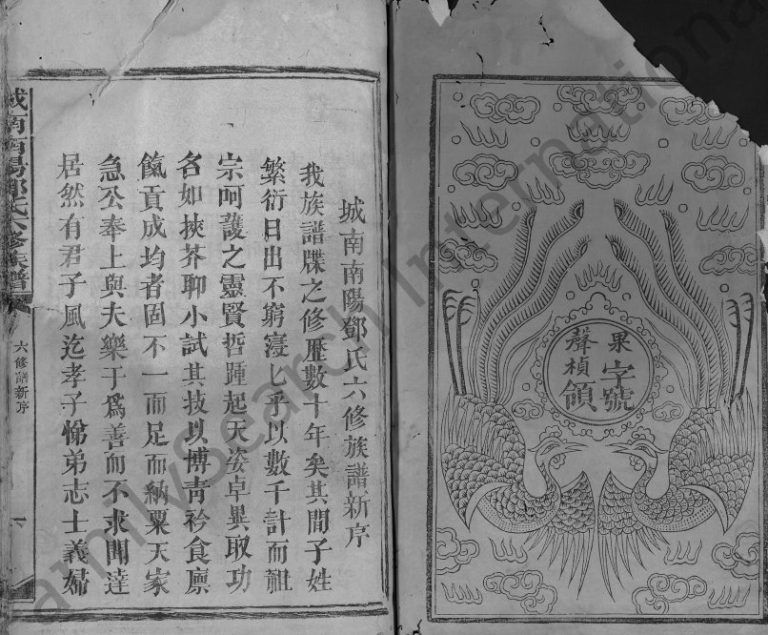 果字號
聲楨領
城南南陽鄧氏六修族譜新序
我族譜牒之修歷數十年矣其間子姓
繁衍日出不窮寖乜乎以數千計而祖
宗呵護之靈賢哲踵起天姿卓異取功
名如挾芥聊小試其技以博青衿食廩
餼貢成均者固不一而足而納粟天家
急公奉上與夫樂于為善而不求聞達
居然有君子風迄孝子悌弟志士義婦
城南南陽鄧氏六修族譜
六修譜新序
一
FamilySearch International